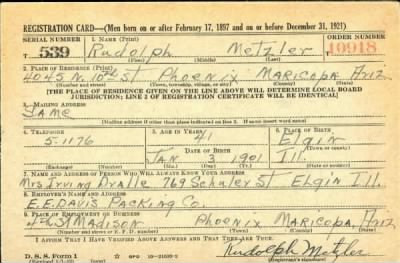 REGISTRATION CARD—(Men born on or after February 17, 1897 and on or before December 31, 1921)
SERIAL NUMBER 1. NAME (Print) ORDER NUMBER
T 539 Rudolph Metzler 10918
(First) (Middle) (Last)
2. PLACE OF RESIDENCE (Print)
4045 N. 10th St Phoenix Maricopa Ariz
(Number and street) (Town, township, village, or city) (County) (State)
[THE PLACE OF RESIDENCE GIVEN ON THE LINE ABOVE WILL DETERMINE LOCAL BOARD
JURISDICTION; LINE 2 OF REGISTRATION CERTIFICATE WILL BE IDENTICAL]
3. MAILING ADDRESS
Same
(Mailing address if other than place indicated on line 2. If same insert word same)
4. TELEPHONE 5. AGE IN YEARS 6. PLACE OF BIRTH
5-1176 41 Elgin
DATE OF BIRTH (Town or county)
JAN 3 1901 Ill.
(Exchange) (Number) (Mo.) (Day) (Yr.) (State or country)
7. NAME AND ADDRESS OF PERSON WHO WILL ALWAYS KNOW YOUR ADDRESS
Mrs Irving Dralle 769 Schuler St Elgin Ill.
8. EMPLOYER'S NAME AND ADDRESS
E.E. Davis Packing Co.
9. PLACE OF EMPLOYMENT OR BUSINESS
4th St Madison Phoenix Maricopa, Ariz
(Number and street or R. F. D. number) (Town) (County) (State)
I AFFIRM THAT I HAVE VERIFIED ABOVE ANSWERS AND THAT THEY ARE TRUE.
D. S. S. Form 1
Rudolph Metzler